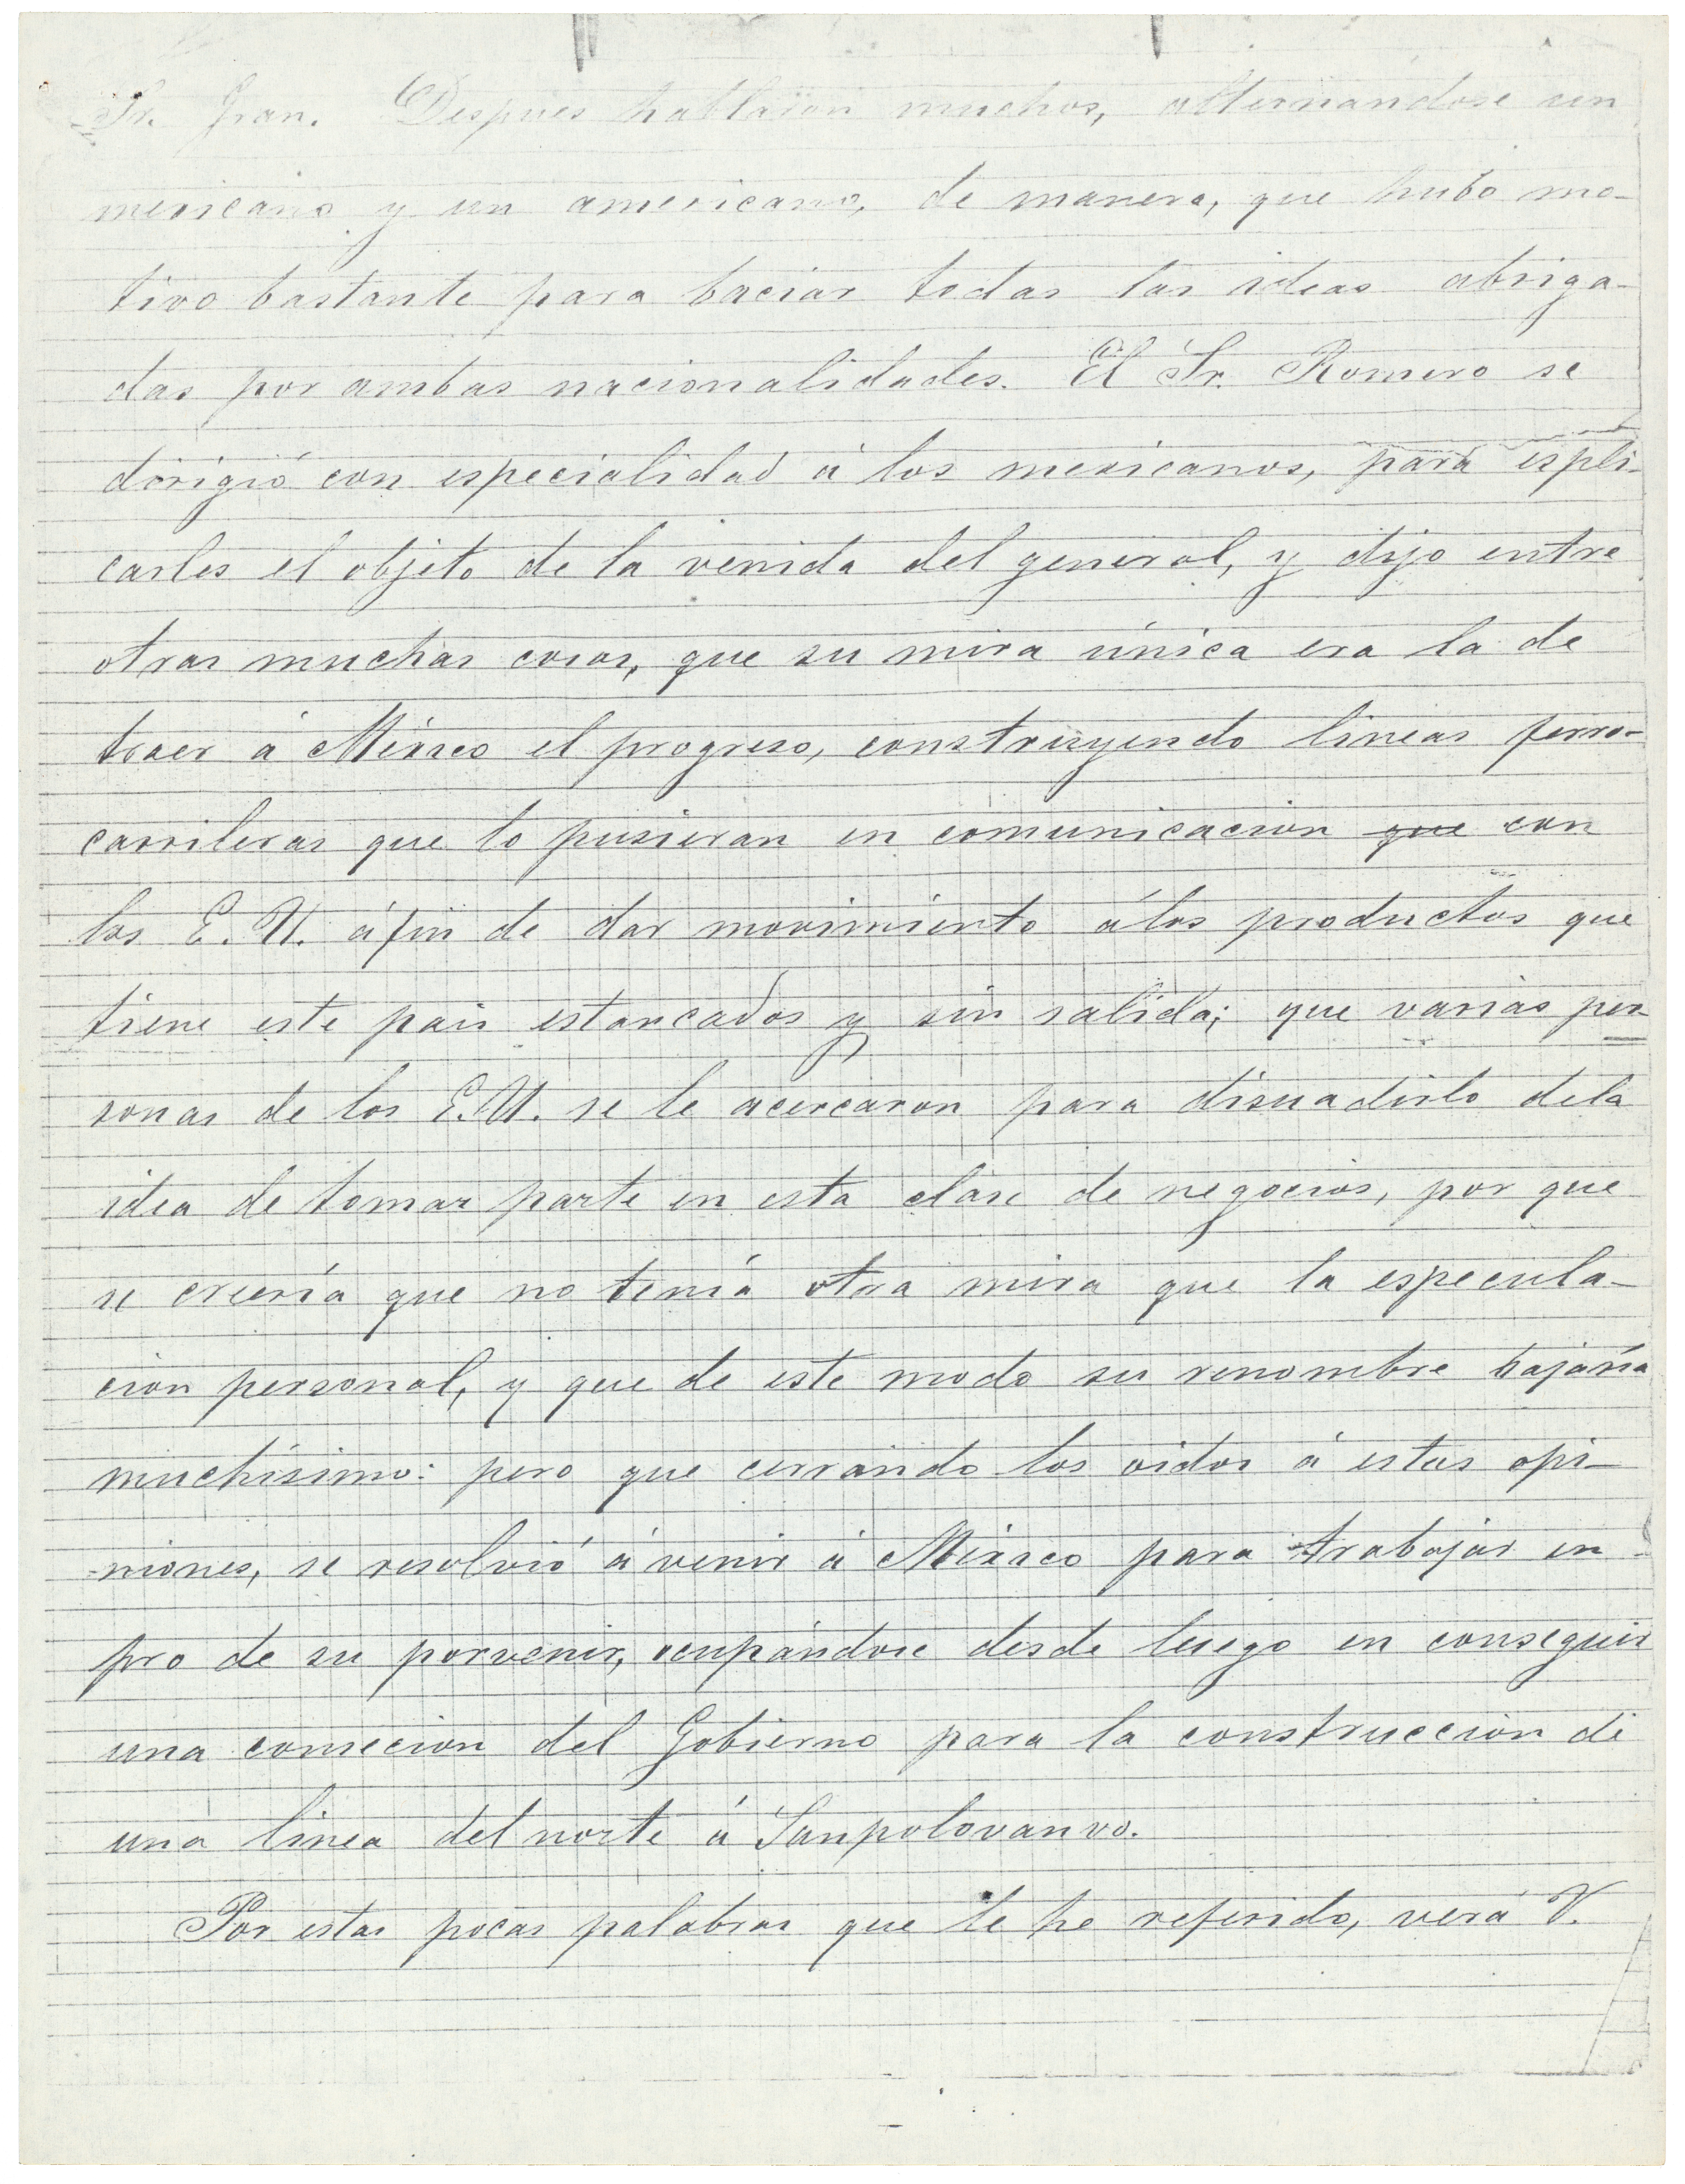 Sr. Gran. Despues hablaron muchos, alternándose un
mexicano y un americano, de manera, que hubo mo-
tivo bastante para baciar todas las ideas abriga-
das por ambas nacionalidades. El Sr. Romero se
dirigió con especialidad á los mexicanos, para espli-
carles el objeto de la venida del general, y dijo entre
otras muchas cosas, que su mira única era la de
traer á México el progreso, construyendo lineas ferro-
carrileras que lo pusieran en comunicacion que con
los E. U. áfin de dar movimiento álos productos que
tiene este pais estancados y sin salida; que varias per
sonas de los E.U. se le acercaron para disuadirlo dela
idea de tomar parte en esta clase de negocios, por que
se creería que no tenía otra mira que la especula-
cion personal, y que de este modo su renombre bajaría
muchísimo: pero que cerrando los oidos á estas opi-
niones, se resolvió á venir á México para trabajar en
pro de su porvenir, ocupándose desde luego en conseguir
una consecion del Gobierno para la construccion de
una linea del norte á Sanpolovanvo.
Por estas pocas palabras que le he referido, verá V.